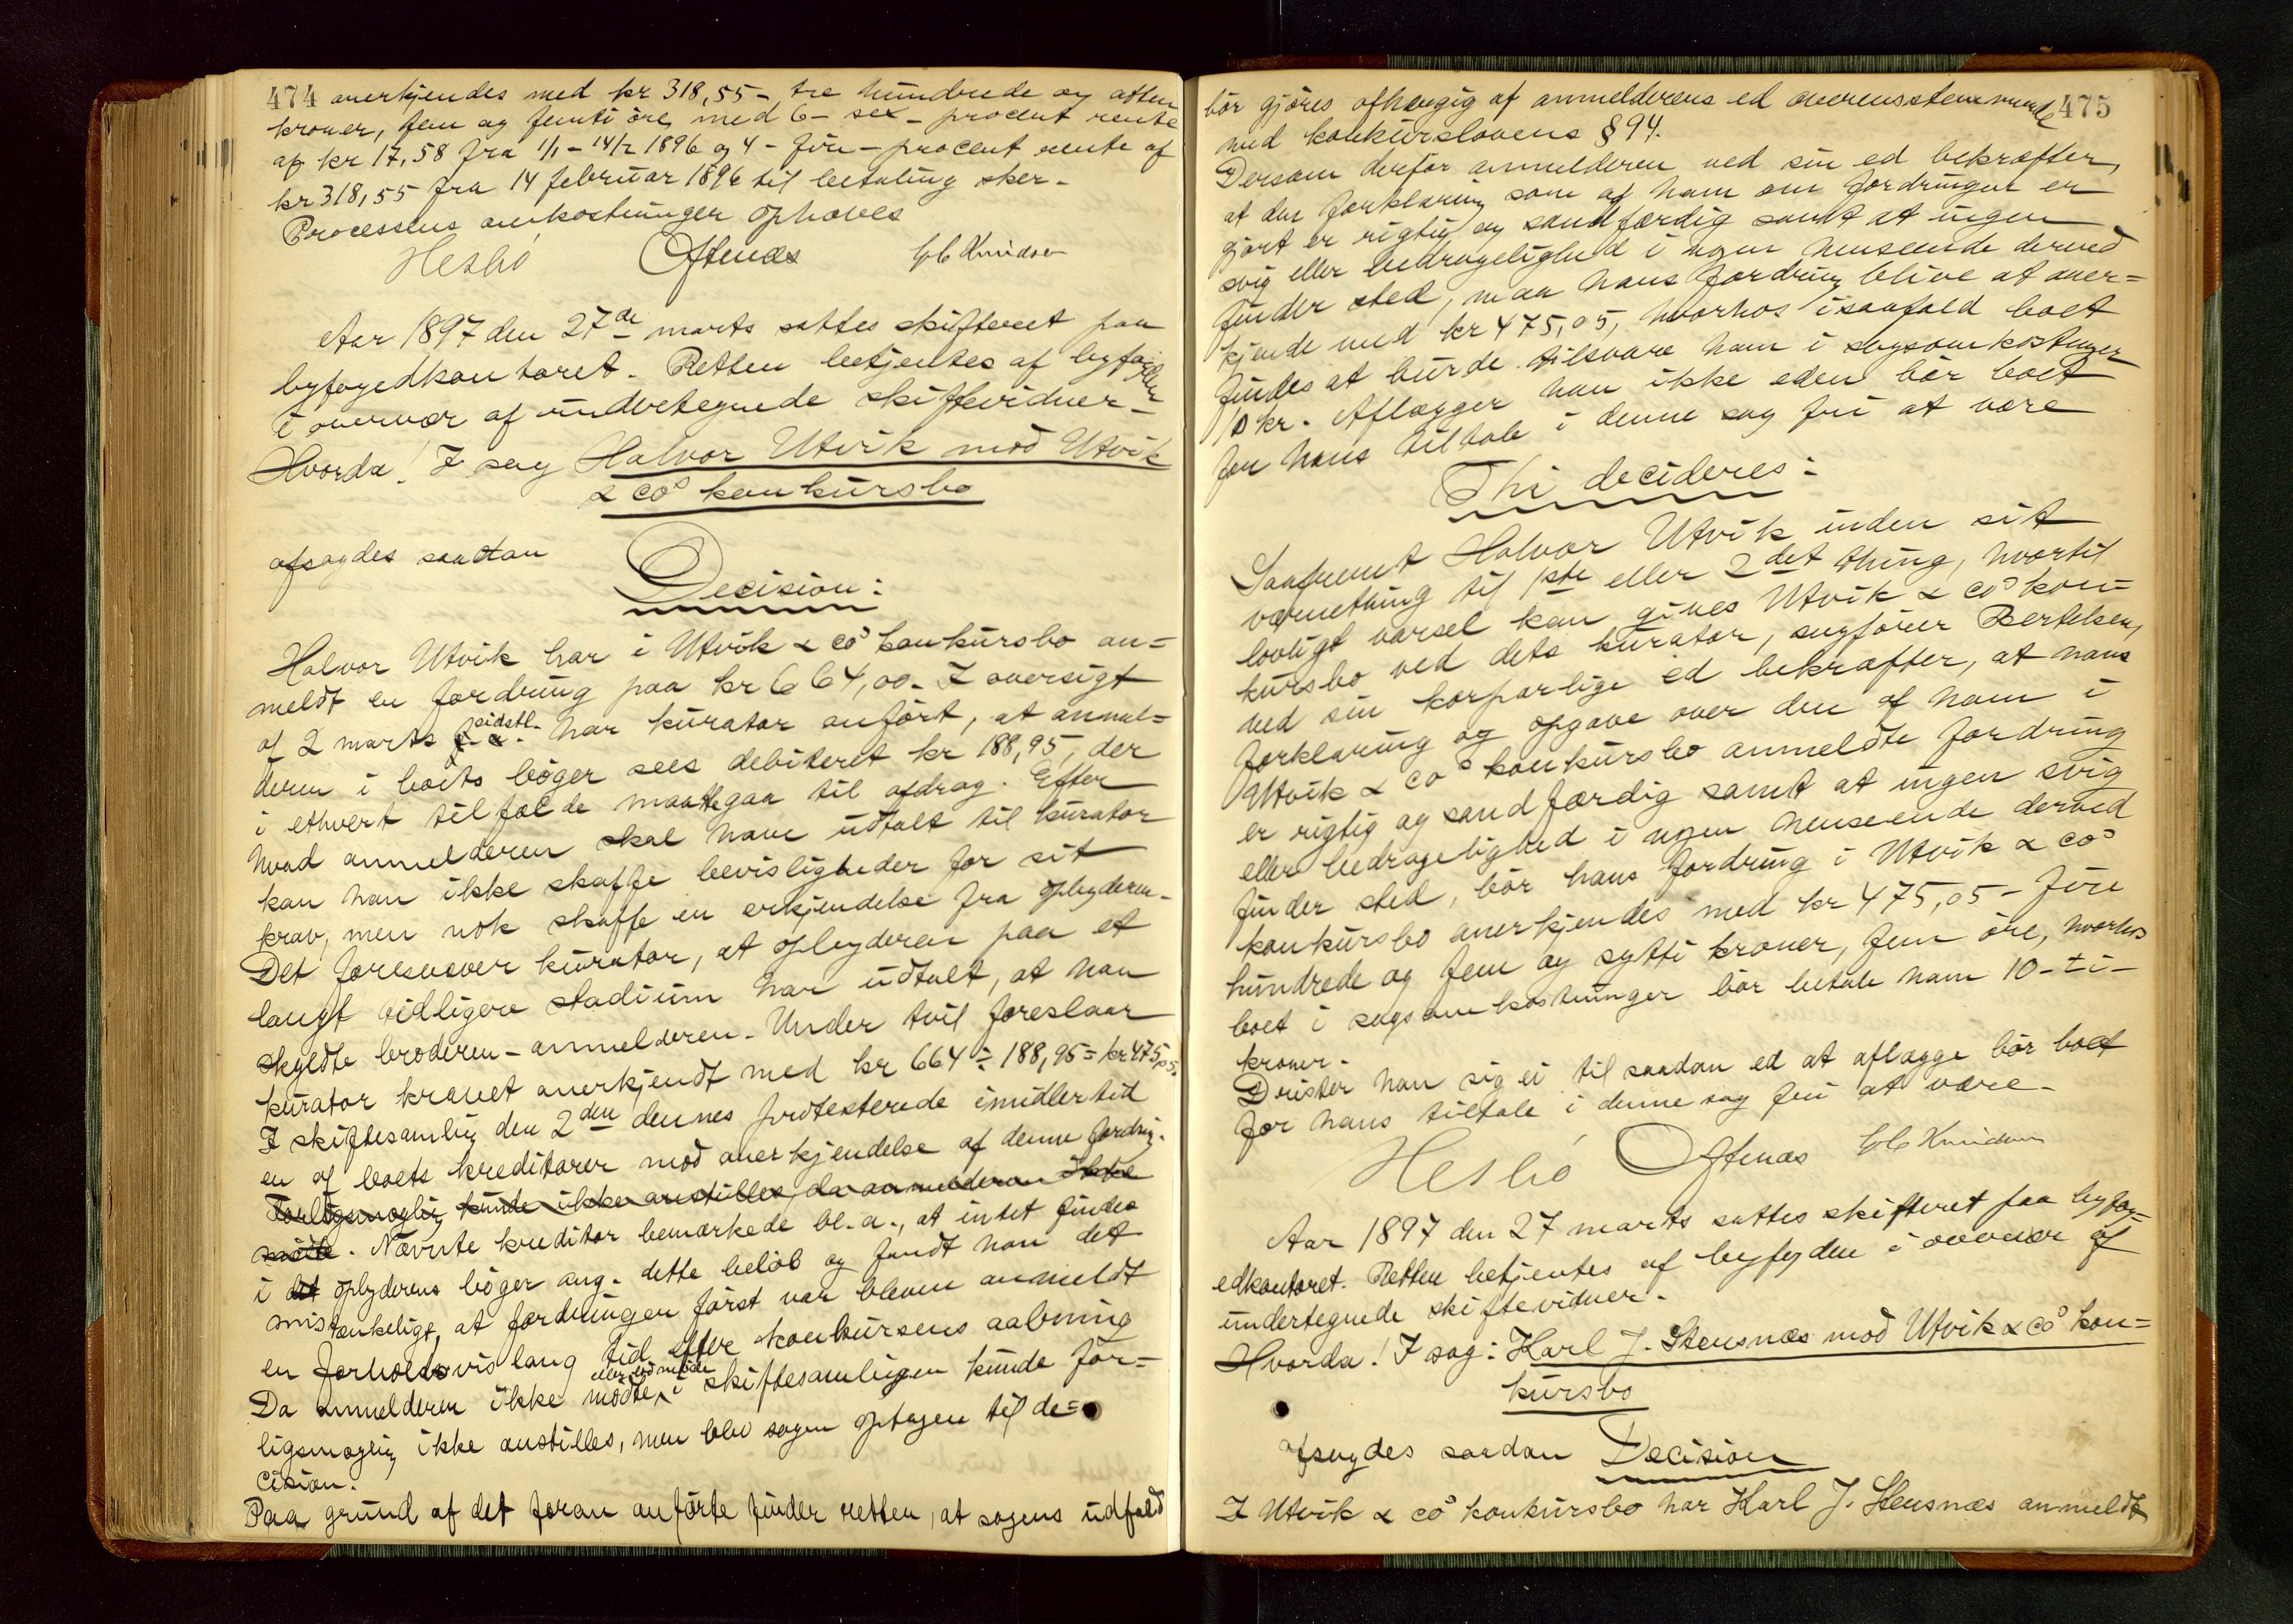 474 anerkjendes med kr 318,55 - tre hundrede og atten
kroner, fem og femti öre, med 6 - sex - procent rente
af kr 17,58 fra 1/1 - 14/2 1896 og 4 - fire - procent rente af
kr 318,55 fra 14 februar 1896 til betaling sker -
Processens omkostninger ophæves
Hesbö Oftenæs Knudsen
Aar 1897 den 27de marts sattes skifteret paa
byfogedkontoret. Retten betjentes af byfogden
i overvær af undertegnede skiftevidner -
Hvorda! I sag Halvor Utvik mod Utvik
& Cos konkursbo
afsagdes saadan
Decision:
Halvor Utvik har i Utvik & Cos konkursbo an=
meldt en fordring paa kr 664,00. I oversigt
af 2 marts sidstl. har kurator anfört, at anmel=
deren i boets böger sees debiteret kr 188,95, der
i ethvert tilfælde maatte gaa til afdrag. Efter
hvad anmelderen skal have udtalt til kurator
kan han ikke skaffe bevisligheder for sit
krav, men nok skaffe en erkjendelse fra opbyderen -
Det foresvæver kurator, at opbyderen paa et
langt tidligere stadium har udtalt, at han
skyldte broderen - anmelderen. Under tvil foreslaar
kurator kravet anerkjendt med kr 664 ÷ 188,95 = kr 475,05.
I skiftesamling den 2den dennes protesterede imidlertid
en af boets kreditorer mod anerkjendelse af denne fordring.
Forligsmægling kunde ikke anstilles, da anmelderen ikke
mötte. Nævnte kreditor bemærkede bl.a., at intet findes
i det opbyderens böger ang. dette belöb og fandt han det
mistænkeligt, at fordringen först var bleven anmeldt
en forholdsvis lang tid efter konkursens aabning
Da anmelderen ikke mötte i skiftesamlingen kunde for=
ligsmægling ikke anstilles, men blev sagen optagen til de=
cision.
Paa grund af det foran anförte finder retten, at sagens udfald
475
bör gjöres afhængig af anmelderens ed overensstemmende
med konkurslovens § 94.
Dersom derfor anmelderen ved sin ed bekræfter,
at den forklaring som af ham om fordringen er
gjort er rigtig og sandfærdig samt at ingen
svig eller bedragelighed i nogen henseende derved
finder sted, maa hans fordring blive at aner=
kjende med kr 475,05, hvorhos isaafald boet
findes at burde tilsvare ham i sagsomkostninger
10 kr. Aflægger han ikke eden bör boet
for hans tiltale i denne sag fri at være
Thi decideres:
Saafremt Halvor Utvik inden sit
værnething til 1ste eller 2det thing, hvortil
lovligt varsel kan gives Utvik & Cos kon=
kursbo ved dets kurator, sagförer Bertelsen,
ved sin korporlige ed bekræfter, at hans
forklaring og opgave over den af ham i
Utvik & Cos konkursbo anmeldte fordring
er rigtig og sandfærdig samt at ingen svig
eller bedragelighed i nogen henseende derved
finder sted, bör hans fordring i Utvik & Cos
konkursbo anerkjendes med kr 475,05 - fire
hundrede og fem og sytti kroner, fem öre, hvorhos
boet i sagsomkostninger bör betale ham 10 - ti -
kroner.
Drister han sig ei til saadan ed at aflægge bör boet
for hans tiltale i denne sag fri at være -
Hesbö Oftenæs Knudsen
Aar 1897 den 27 marts sattes skifteret paa byfog=
edkontoret. Retten betjentes af byfogden i overvær af
undertegnede skiftevidner.
Hvorda! I sag: Karl J. Stensnæs mod Utvik & Cos kon=
kursbo
afsagdes saadan Decision
I Utvik & Cos konkursbo har Karl J. Stensnæs anmeldt